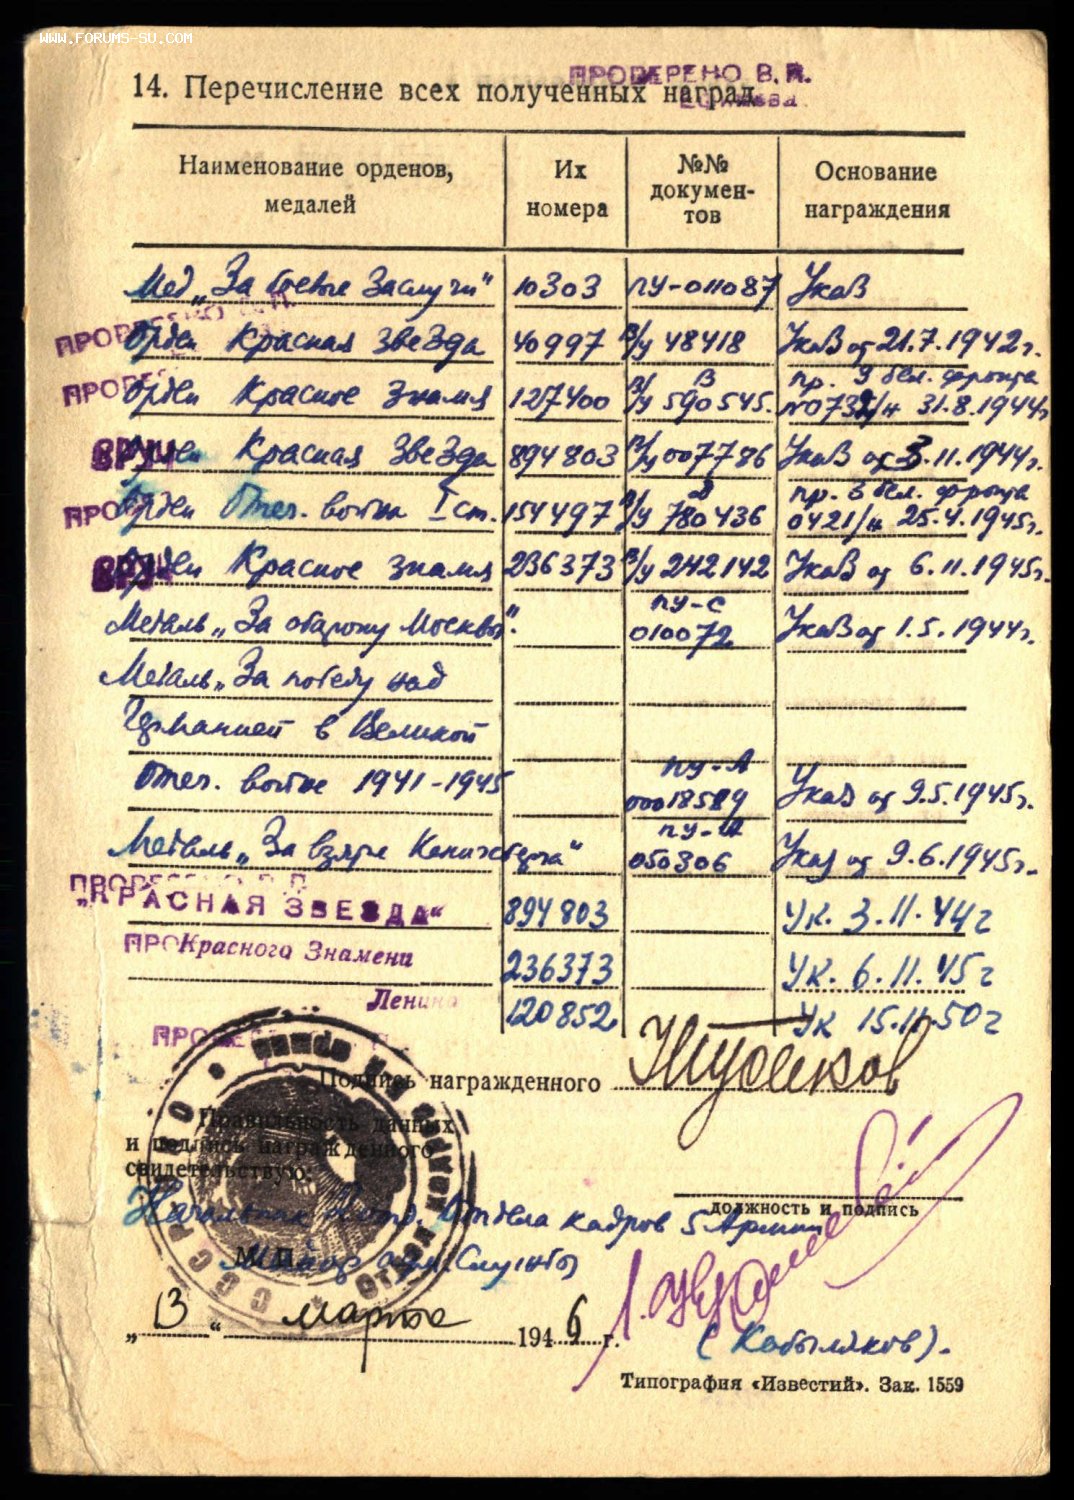 WWW.FORUMS-SU.COM
ПРОВЕРЕНО В.П.
14. Перечисление всех полученных наград
Наименование орденов, медалей Их номера №№ докумен-тов Основание награждения
Мед „За боевые заслуги" 10303 ПУ-011087 Указ
Орден Красная звезда 40997 В/у 48418 Указ от 21.7.1942г.
пр. 3 бел. фронта
Орден Красное знамя 127400 В/у В 590545. 31.8.1944г
Орден Красная звезда 894803 В/у 007786 Указ от 3.11.1944г.
пр. 3 бел. фронта
Орден Отеч. война I ст. 154497 В/у Д 780436 0421/н 25.4.1945г.
Орден Красное знамя 236373 В/у 242142 Указ от 6.11.1945г.
ПУ-С
Медаль „За оборону Москвы". 010072 Указ от 1.5.1944г.
Медаль „За победу над
Германией в Великой
ПУ-А
Отеч. войне 1941-1945 00018589 Указ от 9.5.1945г.
Медаль „За взятие Кенигсберга" 050306 Указ от 9.6.1945г.
ПРОВЕРЕНО В.П.
„КРАСНАЯ ЗВЕЗДА" 894803 Ук. 3.11.44г
Красного Знамени 236373 Ук. 6.11.45г
Ленина 120852 Ук 15.11.50г
Подпись награжденного
Правильность данных
и подпись награжденного
свидетельствую:
должность и подпись
Начальник отдела кадров 5 Армии
М. П. Майор адм. службы
„13" марта 1946 г.
(Кобыляков).
Типография «Известий». Зак. 1559